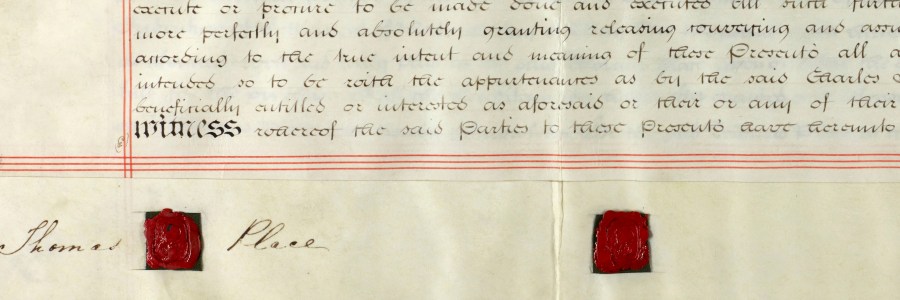 execute or procure to be made done and executed all such further
more perfectly and absolutely granting releasing conveying and assu
according to the true intent and meaning of these Presents all a
intended so to be with the appurtenances as by the said Charles
beneficially entitled or interested as aforesaid or their or any of their
Witness whereof the said Parties to these Presents have hereunto
Thomas Place